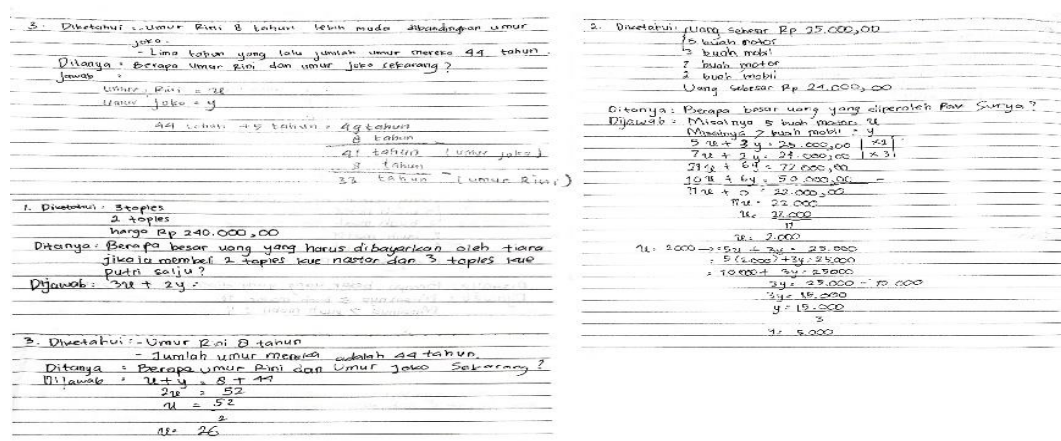 3. Diketahui :- Umur Rini 8 tahun lebih muda dibandingkan umur
joko.
- Lima tahun yang lalu jumlah umur mereka 44 tahun.
Ditanya : Berapa umur Rini dan umur joko sekarang ?
Jawab :
Umur Rini = x
Umur joko = y
44 tahun + 5 tahun = 49 tahun
8 tahun
41 tahun (umur joko)
8 tahun
33 tahun (umur Rini)
1. Diketahui : 3 toples
2 toples
harga Rp 240.000,00
Ditanya : Berapa besar uang yang harus dibayarkan oleh tiara
jika ia membeli 2 toples kue nastar dan 3 toples kue
putri salju ?
Dijawab : 3x + 2y =
3. Diketahui :- Umur Rini 8 tahun
- Jumlah umur mereka adalah 44 tahun.
Ditanya : Berapa umur Rini dan Umur joko Sekarang ?
Dijawab : x + y = 8 + 44
2x = 52
x = 52
2
x = 26
2. Diketahui : Uang sebesar Rp 25.000,00
5 buah motor
3 buah mobil
7 buah motor
2 buah mobil
Uang sebesar Rp 24.000,00
Ditanya : Berapa besar uang yang diperoleh Pak Surya ?
Dijawab : Misalnya 5 buah motor = x
Misalnya 7 buah mobil = y
5x + 3y = 25.000,00 | x2 |
7x + 2y = 24.000,00 | x3 |
21x + 6y = 72.000,00
10x + 6y = 50.000,00 -
11x + 0 = 22.000,00
11x = 22.000
x = 22.000
11
x = 2.000
x = 2000 → = 5x + 3y = 25.000
= 5(2.000) + 3y = 25.000
= 10.000 + 3y = 25000
3y = 25.000 - 10.000
3y = 15.000
y = 15.000
3
y = 5.000